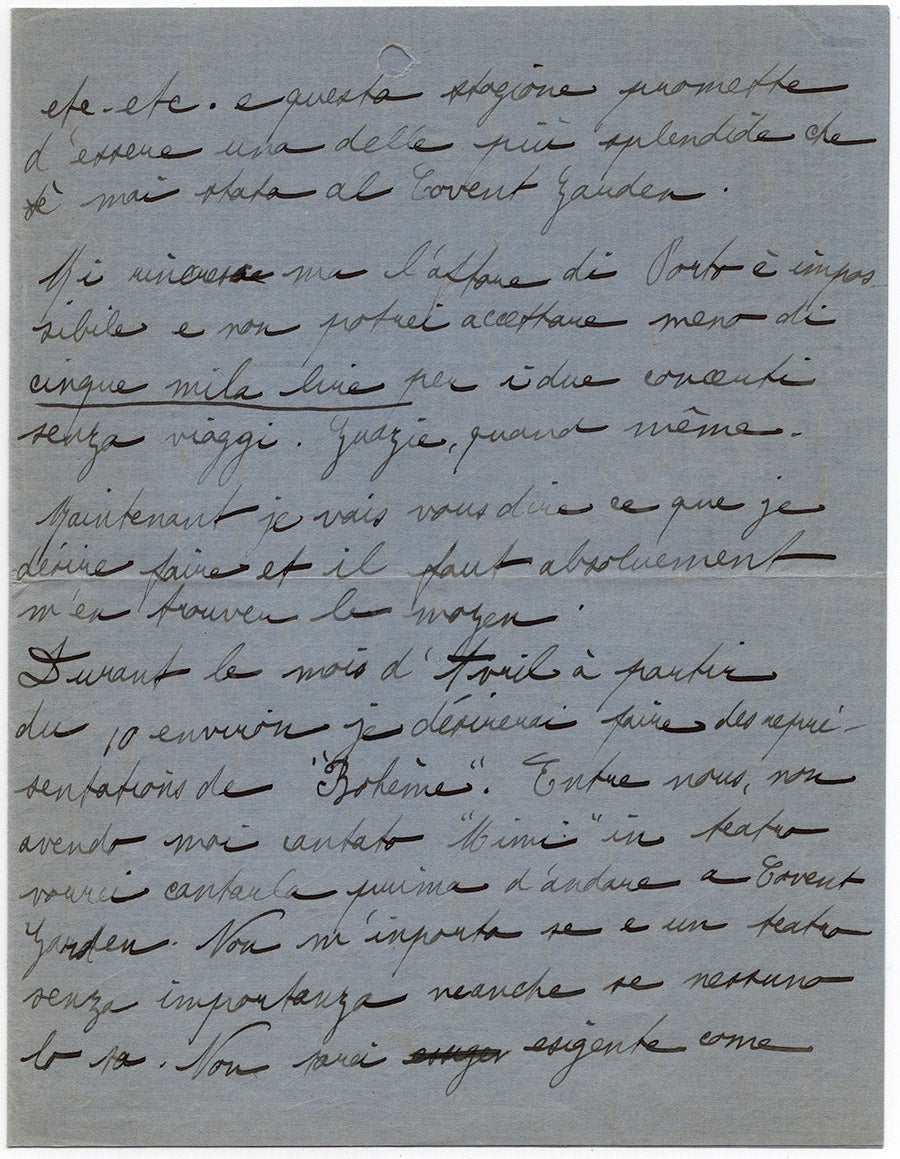 etc-etc. e questa stagione promette
d'essere una delle più splendide che
è mai stata al Covent Garden.
Mi rincresce ma l'affare di Porto è impos-
sibile e non potrei accettare meno di
cinque mila lire per i due concerti
senza viaggi. Grazie, quand même.
Maintenant je vais vous dire ce que je
désire faire et il faut absoluement
m'en trouver le moyen.
Durant le mois d'Avril à partir
du 10 environ je désirerai faire des repré-
sentations de "Bohême". Entre nous, non
avendo mai cantato "Mimi" in teatro
vorrei cantarla prima d'andare a Covent
Garden. Non m'inporta se e un teatro
senza importanza neanche se nessuno
lo sa. Non sarei esigente come